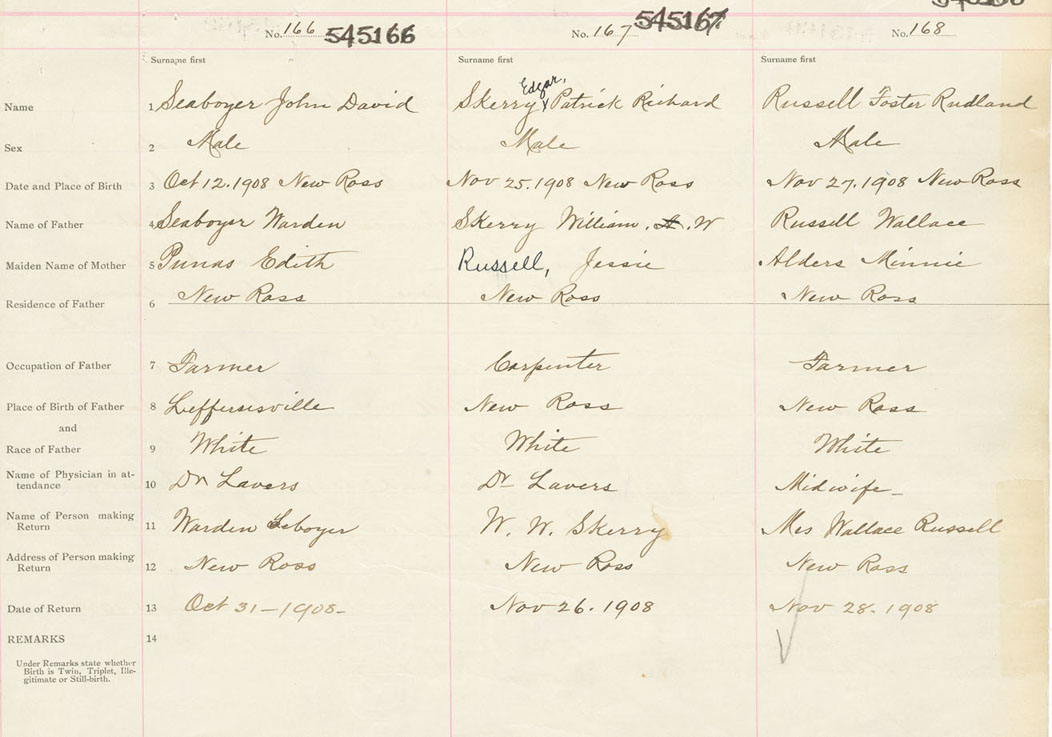 No. 166 545166 No. 167 545167 No. 168
Surname first Surname first Surname first
Name 1 Seaboyer John David Skerry Edgar, Patrick Richard Russell Foster Rudland
Sex 2 Male Male Male
Date and Place of Birth 3 Oct 12. 1908 New Ross Nov 25. 1908 New Ross Nov 27. 1908 New Ross
Name of Father 4 Seaboyer Warden Skerry William. W Russell Wallace
Maiden Name of Mother 5 Edith Russell, Jessie Alders Minnie
Residence of Father 6 New Ross New Ross New Ross
Occupation of Father 7 Farmer Carpenter Farmer
Place of Birth of Father 8 New Ross New Ross
and
Race of Father 9 White White White
Name of Physician in at-
tendance 10 Dr Lavers Dr Lavers Midwife
Name of Person making
Return 11 Warden W. W. Skerry Mrs Wallace Russell
Address of Person making
Return 12 New Ross New Ross New Ross
Date of Return 13 Oct 31 - 1908 - Nov 26. 1908 Nov 28. 1908
REMARKS 14
Under Remarks state whether
Birth is Twin, Triplet, Ille-
gitimate or Still-birth.